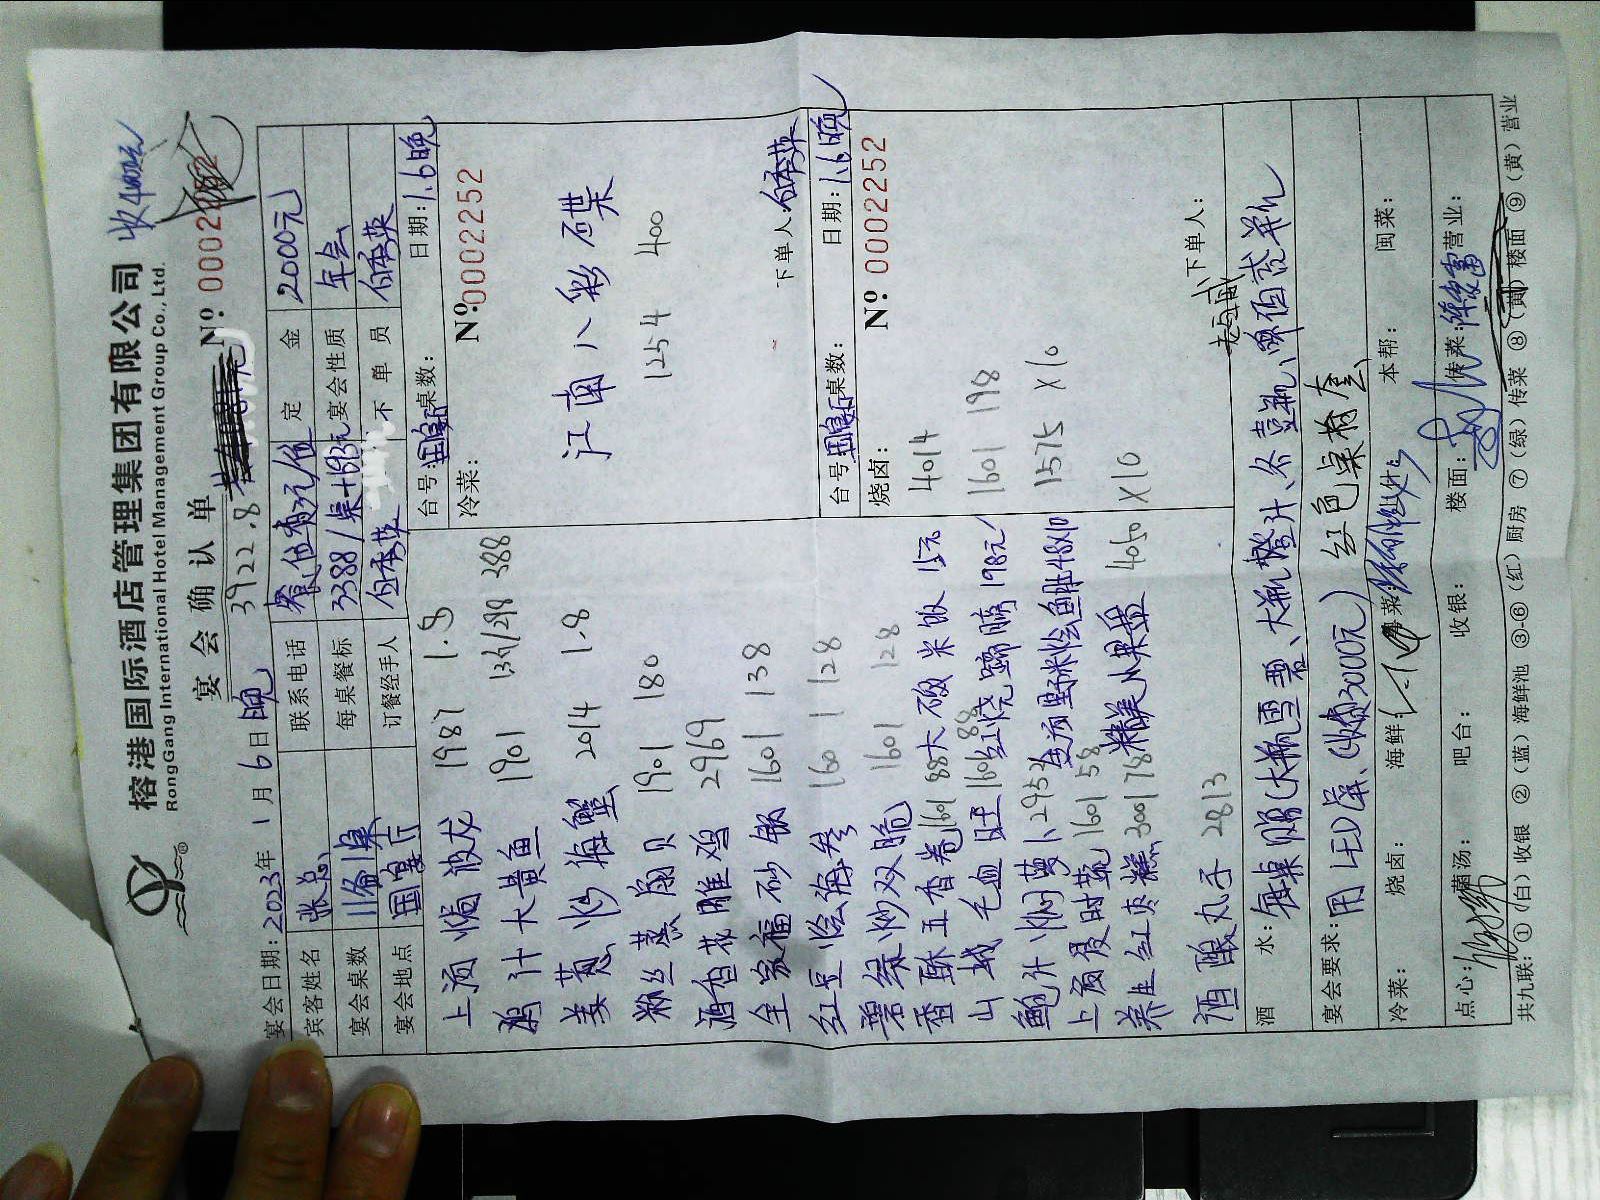 榕港国际酒店管理集团有限公司
RongGang International Hotel Management Group Co., Ltd.
宴会确认单
3922.8
Nº 0002252
宴会日期: 2023年 1月 6日晚
宾客姓名 张总 联系电话 定金 2000元
宴会桌数 11备1桌 每桌餐标 3388/桌 宴会性质 年会
宴会地点 国宴厅 订餐经手人 下单员
台号: 国宴厅 桌数: 日期: 1.6晚
冷菜: Nº 0002252
江南八彩碟
1254 400
下单人:
台号: 国宴厅 桌数: 日期: 1.6晚
烧卤: Nº 0002252
4014
1601 198
1575 X10
X10
下单人:
上汤焗波龙 1987 1.8
鲍汁大黄鱼 1901 388
姜葱炒海蟹 2014 1.8
粉丝蒸扇贝 1901 180
酒香花雕鸡 2969
全家福砂锅 1601 138
红豆烩海参 1601 128
碧绿炒双脆 1601 128
香酥五香卷 1601 88
山城毛血旺 1601 88
鲍汁焖萝卜 295
上汤时蔬 1601 58
养生红枣糕 3001 78
米饭 15元
红烧蹄膀 198元
野米烩
精美水果 4050
酒酿丸子 2813
酒水: 大瓶雪碧、大瓶橙汁
宴会要求: 用LED屏、(收费3000元) 红色桌椅套
冷菜: 烧卤: 海鲜: 本帮: 闽菜:
点心: 羹汤: 吧台: 收银: 楼面: 传菜: 营业:
共九联: ①(白)收银 ②(蓝)海鲜池 ③-⑥(红)厨房 ⑦(绿)传菜 ⑧(黄)楼面 ⑨(黄)营业